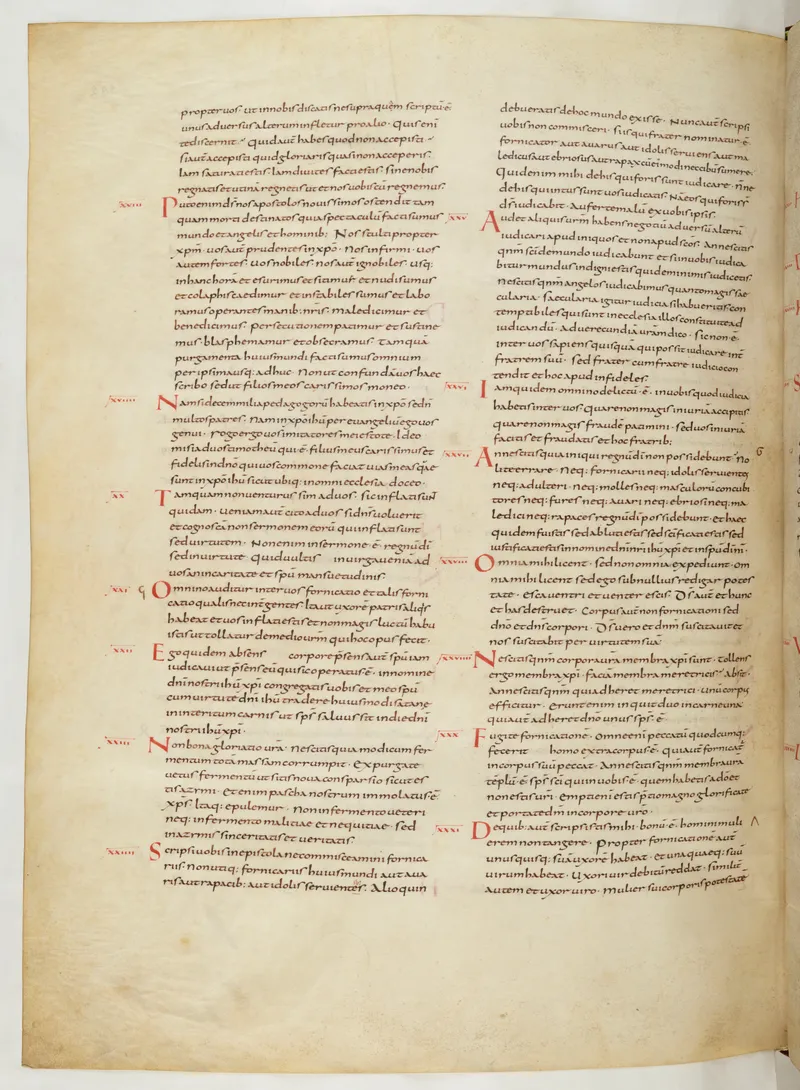 propter uos· ut in nobis discatis ne supra quam scriptū ē·
unus aduersus alterum infletur pro alio· Quis enī
te discernit· quid aut̄ habes quod non accepisti·
si aut̄ accepisti quid gloriaris quasi non acceperis·
Iam saturati estis· Iam diuites facti estis· sine nobis
regnatis et utinā regnetis ut et nos uobiscū regnemus·
xviii Puto enim ds̄ nos apostolos nouissimos ostendit tam
quam morti destinatos quia spectaculū facti sumus
mundo et angelis et hominib; Nos stulti propter
xp̄m· uos aut̄ prudentes in xpō· Nos infirmi· uos
autem fortes· uos nobiles· nos aut̄ ignobiles· usq;
in hanc horā et esurimus et sitimus et nudi sumus
et colaphis caedimur et instabiles sumus et labo
ramus operantes manib; nr̄is· maledicimur et
benedicimus· persecutionem patimur et sustine
mus· blasphemamur et obsecramus· Tamquā
purgamenta huius mundi facti sumus omnium
peripsima usq; adhuc· Non ut confundā uos haec
scribo sed ut filios meos carissimos moneo·
xviiii Nam si decem milia pedagogorū habeatis in xpō sed n̄
multos patres· Nam in xpō ihū per euangeliū ego uos
genui· rogo ergo uos imitatores mei estote· Ideo
misi ad uos timotheū qui ē· filius meus carissimus et
fidelis in dn̄o qui uos commonefaciat uias meas quae
sunt in xpō ihū sicut ubiq; in omni ecclesia doceo·
xx Tamquam non uenturus sim ad uos· sic inflati sun̄t
quidam· ueniam aut̄ cito ad uos si dn̄s uoluerit
et cognoscā non sermonem eorū qui inflati sunt
sed uirtutem· Non enim in sermone ē· regnū dī
sed in uirtute· quid uultis in uirga ueniā ad
uos an in caritate et spū mansuetudinis·
xxi Omnino auditur inter uos fornicatio et talis forni
catio qualis nec int̄ gentes· Ita ut uxorē patris aliq̇s
habeat et uos inflati estis et non magis luctū habu
istis ut tollatur de medio urm̄ qui hoc opus fecit·
xxii Ego quidem absens corpore p̄sens aut̄ spū iam
iudicaui ut p̄sens eū qui sic operatus ē· in nomine
dn̄i nostri ihū xpī congregatis uobis et meo spū
cum uirtute dn̄i ihū tradere huiusmodi satane
in interitum carnis ut sp̄s saluus sit in die dn̄i
nostri ihū xpī·
xxiii Non bona gloriatio ur̄a· Nescitis quia modicum fer
mentum tota massam corrumpit· Expurgate
uetus fermentū ut sitis noua consparsio sicut es
tis azimi· Etenim pascha nostrum immolatus ē·
xp̄s· Itaq; epulemur· non in fermento ueteri
neq; in fermento malitiae et nequitiae· sed
in azimis sinceritatis et ueritatis·
xxiiii Scripsi uobis in epistola ne commisceamini fornica
riis· non utiq; fornicariis huius mundi aut aua
ris aut rapacib; aut idolis seruientes· Alioquin
debueratis de hoc mundo exisse· Nunc aut̄ scripsi
uobis non commisceri· si is qui frater nominatur ē·
fornicator aut auarus aut idolis seruiens aut ma
ledicus aut ebriosus aut rapax cū eiusmodi nec cibū sumere·
Quid enim mihi de his qui foris sunt iudicare· n̄ne
de his qui intus sunt uos iudicatis· Nā eos qui foris s̄
ds̄ iudicabit· Auferte malū ex uobis ipsis·
xxv Audet aliquis ur̄m habens negotiū aduersū alterū
iudicari apud iniquos et non apud sc̄os· An nescitis
qnm̄ sc̄i de mundo iudicabunt et si in uobis iudica
bitur mundus indigni estis qui de minimis iudicetis·
Nescitis qnm̄ angelos iudicabimus quanto magis sae
cularia· saecularia igitur iudicia si habueritis con
temptibiles qui sunt in ecclesia illos constituite ad
iudicandū· Ad uerecundiā urām dico· sic non ē·
inter uos sapiens quisquā qui possit iudicare int̄
fratrem suū· sed frater cum fratre iudicio con
tendit et hoc apud infideles·
xxvi Iam quidem omnino delictū· ē· in uobis quod iudicia
habetis inter uos quare non magis iniuriā accipitis
quare non magis fraudē patimini· sed uos iniuriā
facitis et fraudatis et hoc fratrib;
xxvii An nescitis quia iniqui regnū dī non possidebunt· No
lite errare· Neq; fornicarii neq; idolis seruientes
neq; adulteri· neq; molles neq; masculorū concubi
tores neq; fures neq; auari neq; ebriosi neq; ma
ledici neq; rapaces regnū dī possidebunt· et haec
quidem fuistis sed abluti estis sed scificati estis sed
iustificati estis in nomine dn̄i nr̄i ihū xpī et in spū dī nr̄i·
xxviii Omnia mihi licent· sed non omnia expediunt· Om
nia mihi licent sed ego sub nullius redigar potes
tate· Esca uentri et uenter escis· Ds̄ aut̄ et hunc
et has destruet· Corpus aut̄ non fornicationi sed
dn̄o et dn̄s corpori· Ds̄ uero et dn̄m suscitauit et
nos suscitabit per uirtutem suā·
xxviiii Nescitis qnm̄ corpora urā membra xpī sunt· Tollens
ergo membra xpī· faciā membra meretricis· Absit·
An nescitis qnm̄ qui adheret meretrici· unū corpus
efficitur· erunt enim inquit duo in carne una
qui aut̄ adheret dn̄o unus sp̄s· ē·
xxx Fugite fornicatione· Omne enī peccatū quodcumq;
fecerit homo extra corpus ē· qui aut̄ fornicat̄
in corpus suū peccat· An nescitis qnm̄ membra urā
tēplū ē· sp̄s sc̄i qui in uobis ē· quem habetis a dō et
non estis urī· empti enī estis p̄tio magno glorificate
et portate dm̄ in corpore uro·
xxxi De quib; aut̄ scripsistis mihi· bonū· ē· homini muli
erem non tangere· Propter fornicationē aut̄
unusquisq; suā uxorē habeat· et una quaeq; suū
uirum habeat· Uxori uir debitū reddat· similit̄
autem et uxor uiro· mulier sui corporis potestatē